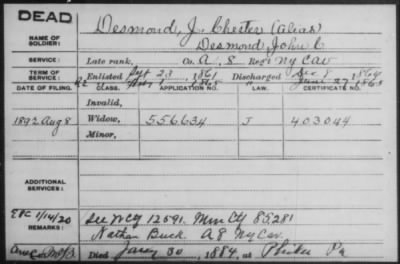 DEAD
NAME OF SOLDIER:
Desmond, J. Chester (alias)
Desmond, John C
SERVICE:
Late rank, Co. A, 8 Reg't NY Cav
TERM OF SERVICE:
Enlisted Sept 23 1861 Discharged Dec 8 1864
June 27 1865
DATE OF FILING.
CLASS.
APPLICATION NO.
LAW.
CERTIFICATE NO.
Invalid,
1892 Aug 8
Widow,
556634
J
403044
Minor,
ADDITIONAL SERVICES:
EBC 1/14/20
REMARKS:
See WC 12591. Min Ctf 85,281
Nathan Buck. A 8 Ny Cav.
Died Jany 30, 1884, at Phila Pa